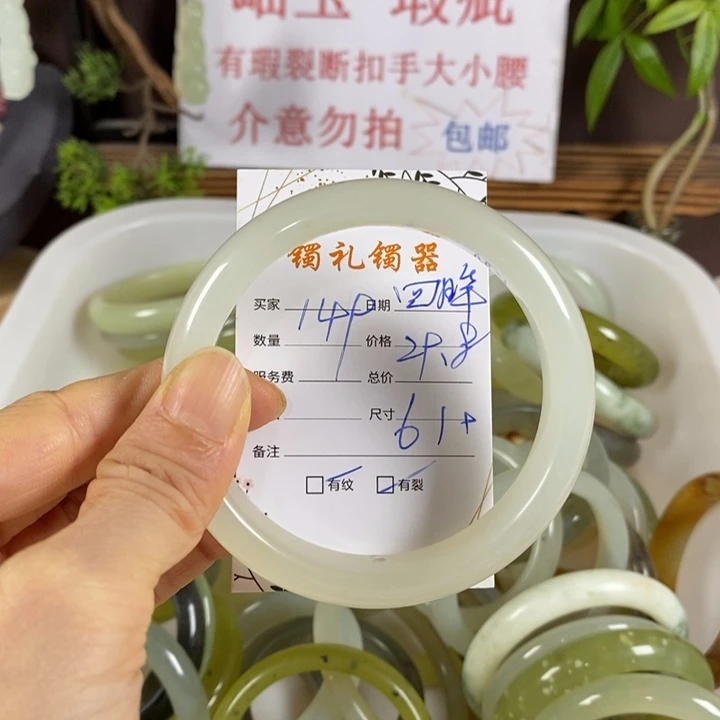 岫玉 瑕疵
有瑕裂断扣手大小腰
介意勿拍 包邮
镯礼镯器
买家 149 日期
数量 价格 29.8
服务费 总价
尺寸 61+
备注
有纹 有裂